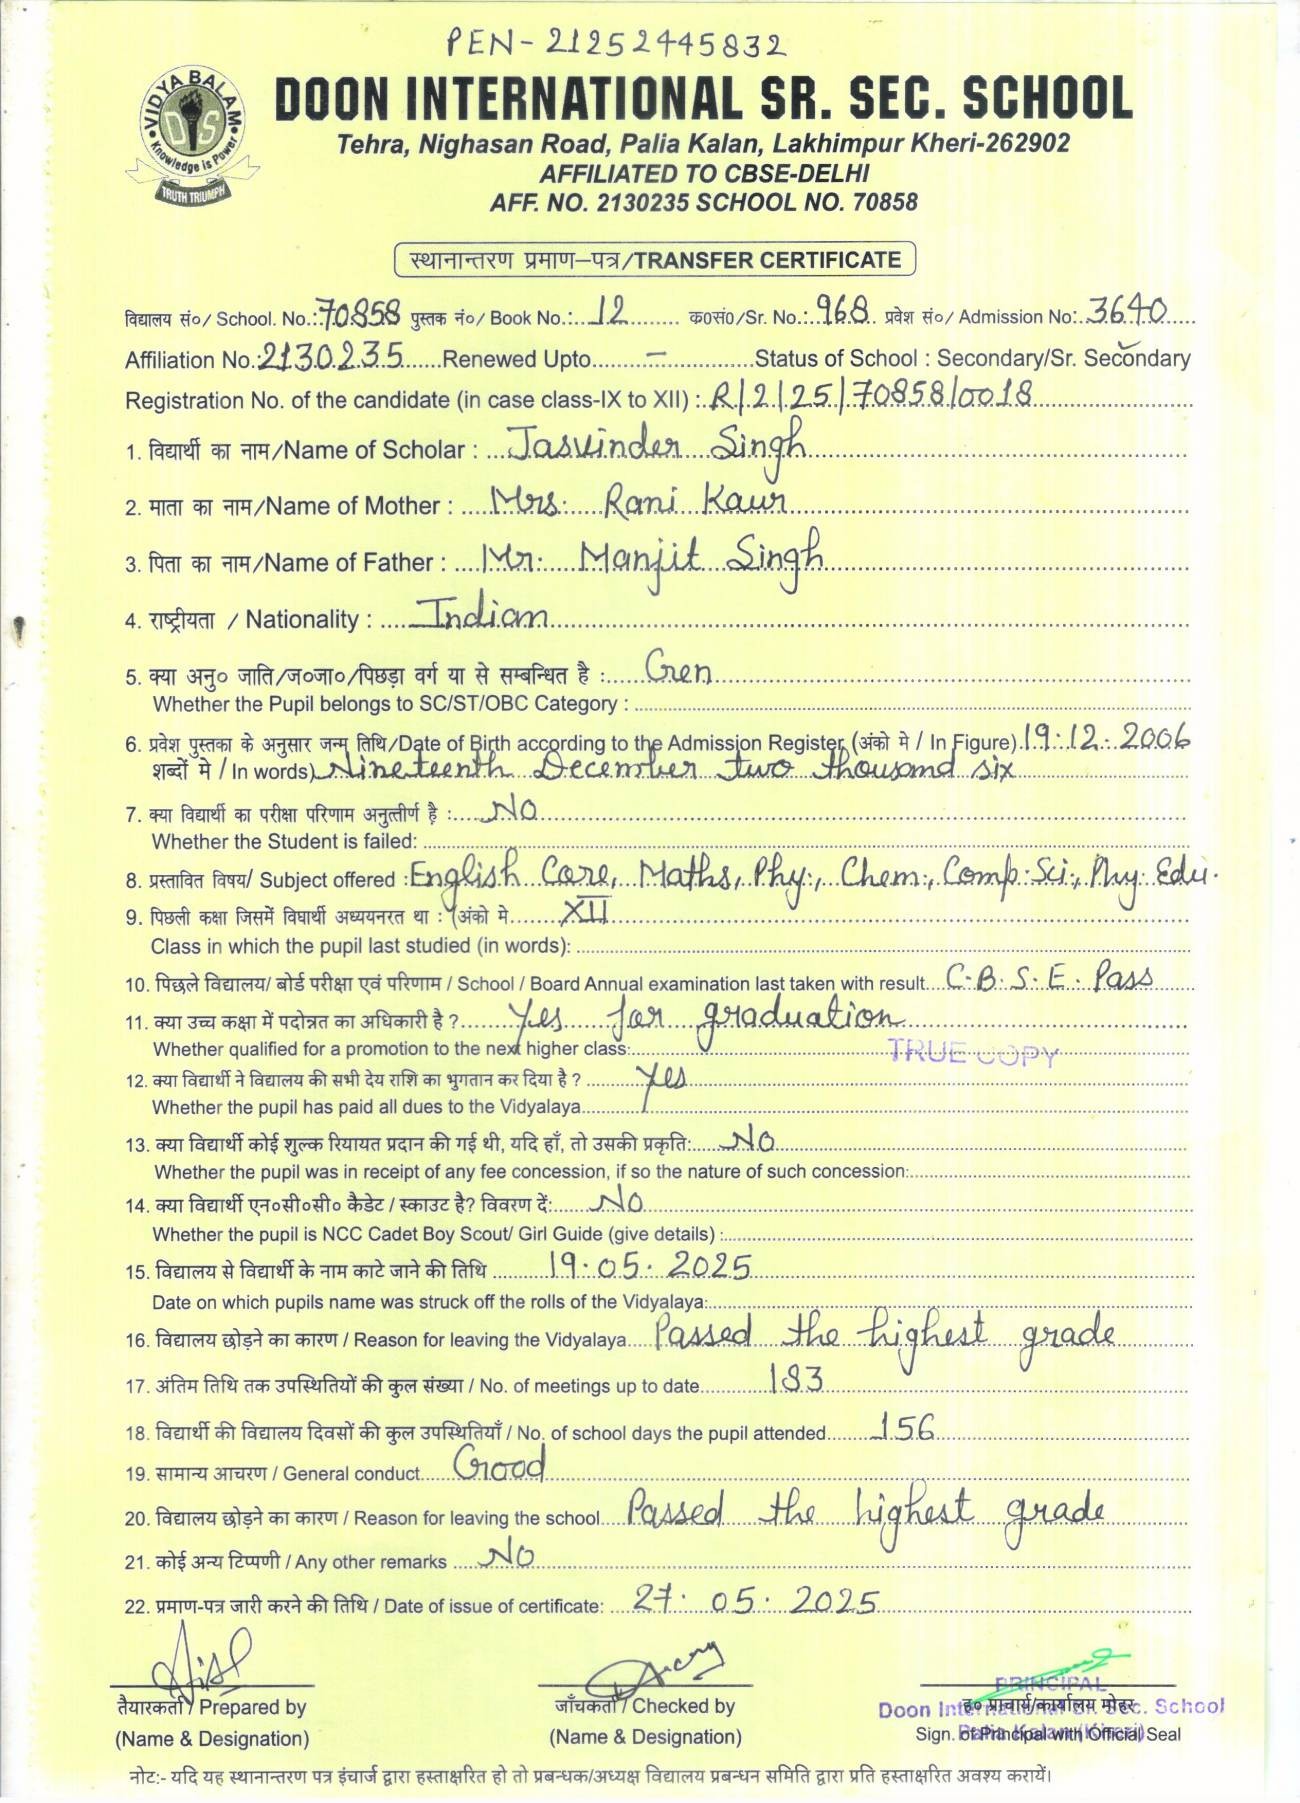 PEN- 21252445832
VIDYA BALAM
DIS
Knowledge is Power
TRUTH TRIUMPH
DOON INTERNATIONAL SR. SEC. SCHOOL
Tehra, Nighasan Road, Palia Kalan, Lakhimpur Kheri-262902
AFFILIATED TO CBSE-DELHI
AFF. NO. 2130235 SCHOOL NO. 70858
स्थानान्तरण प्रमाण–पत्र/TRANSFER CERTIFICATE
विद्यालय सं०/ School. No.: 70858 पुस्तक नं०/ Book No.: 12 क०सं०/Sr. No.: 968 प्रवेश सं०/ Admission No: 3640
Affiliation No.: 2130235 Renewed Upto – Status of School : Secondary/Sr. Secondary
Registration No. of the candidate (in case class-IX to XII) : R/2/25/70858/0018
1. विद्यार्थी का नाम/Name of Scholar : Jasvinder Singh
2. माता का नाम/Name of Mother : Mrs. Rani Kaur
3. पिता का नाम/Name of Father : Mr. Manjit Singh
4. राष्ट्रीयता / Nationality : Indian
5. क्या अनु० जाति/ज०जा०/पिछड़ा वर्ग या से सम्बन्धित है : Gen
Whether the Pupil belongs to SC/ST/OBC Category :
6. प्रवेश पुस्तका के अनुसार जन्म तिथि/Date of Birth according to the Admission Register (अंको मे / In Figure) 19.12.2006
शब्दों मे / In words) Nineteenth December two thousand six
7. क्या विद्यार्थी का परीक्षा परिणाम अनुत्तीर्ण है : No
Whether the Student is failed:
8. प्रस्तावित विषय/ Subject offered : English Core, Maths, Phy., Chem., Comp. Sci., Phy. Edu.
9. पिछली कक्षा जिसमें विद्यार्थी अध्ययनरत था : (अंको मे XII
Class in which the pupil last studied (in words):
10. पिछले विद्यालय/ बोर्ड परीक्षा एवं परिणाम / School / Board Annual examination last taken with result C.B.S.E. Pass
11. क्या उच्च कक्षा में पदोन्नत का अधिकारी है ? Yes for graduation
Whether qualified for a promotion to the next higher class:
TRUE COPY
12. क्या विद्यार्थी ने विद्यालय की सभी देय राशि का भुगतान कर दिया है ? Yes
Whether the pupil has paid all dues to the Vidyalaya
13. क्या विद्यार्थी कोई शुल्क रियायत प्रदान की गई थी, यदि हाँ, तो उसकी प्रकृति: No
Whether the pupil was in receipt of any fee concession, if so the nature of such concession:
14. क्या विद्यार्थी एन०सी०सी० कैडेट / स्काउट है? विवरण दें: No
Whether the pupil is NCC Cadet Boy Scout/ Girl Guide (give details) :
15. विद्यालय से विद्यार्थी के नाम काटे जाने की तिथि 19.05.2025
Date on which pupils name was struck off the rolls of the Vidyalaya:
16. विद्यालय छोड़ने का कारण / Reason for leaving the Vidyalaya Passed the highest grade
17. अंतिम तिथि तक उपस्थितियों की कुल संख्या / No. of meetings up to date 183
18. विद्यार्थी की विद्यालय दिवसों की कुल उपस्थितियाँ / No. of school days the pupil attended 156
19. सामान्य आचरण / General conduct Good
20. विद्यालय छोड़ने का कारण / Reason for leaving the school Passed the highest grade
21. कोई अन्य टिप्पणी / Any other remarks No
22. प्रमाण-पत्र जारी करने की तिथि / Date of issue of certificate: 27.05.2025
तैयारकर्ता / Prepared by जाँचकर्ता / Checked by ह० प्राचार्य/कार्यालय मोहर
(Name & Designation) (Name & Designation) Sign. of Principal with Official Seal
PRINCIPAL
Doon International Sr. Sec. School
Palia Kalan (Kheri)
नोट:- यदि यह स्थानान्तरण पत्र इंचार्ज द्वारा हस्ताक्षरित हो तो प्रबन्धक/अध्यक्ष विद्यालय प्रबन्धन समिति द्वारा प्रति हस्ताक्षरित अवश्य करायें।